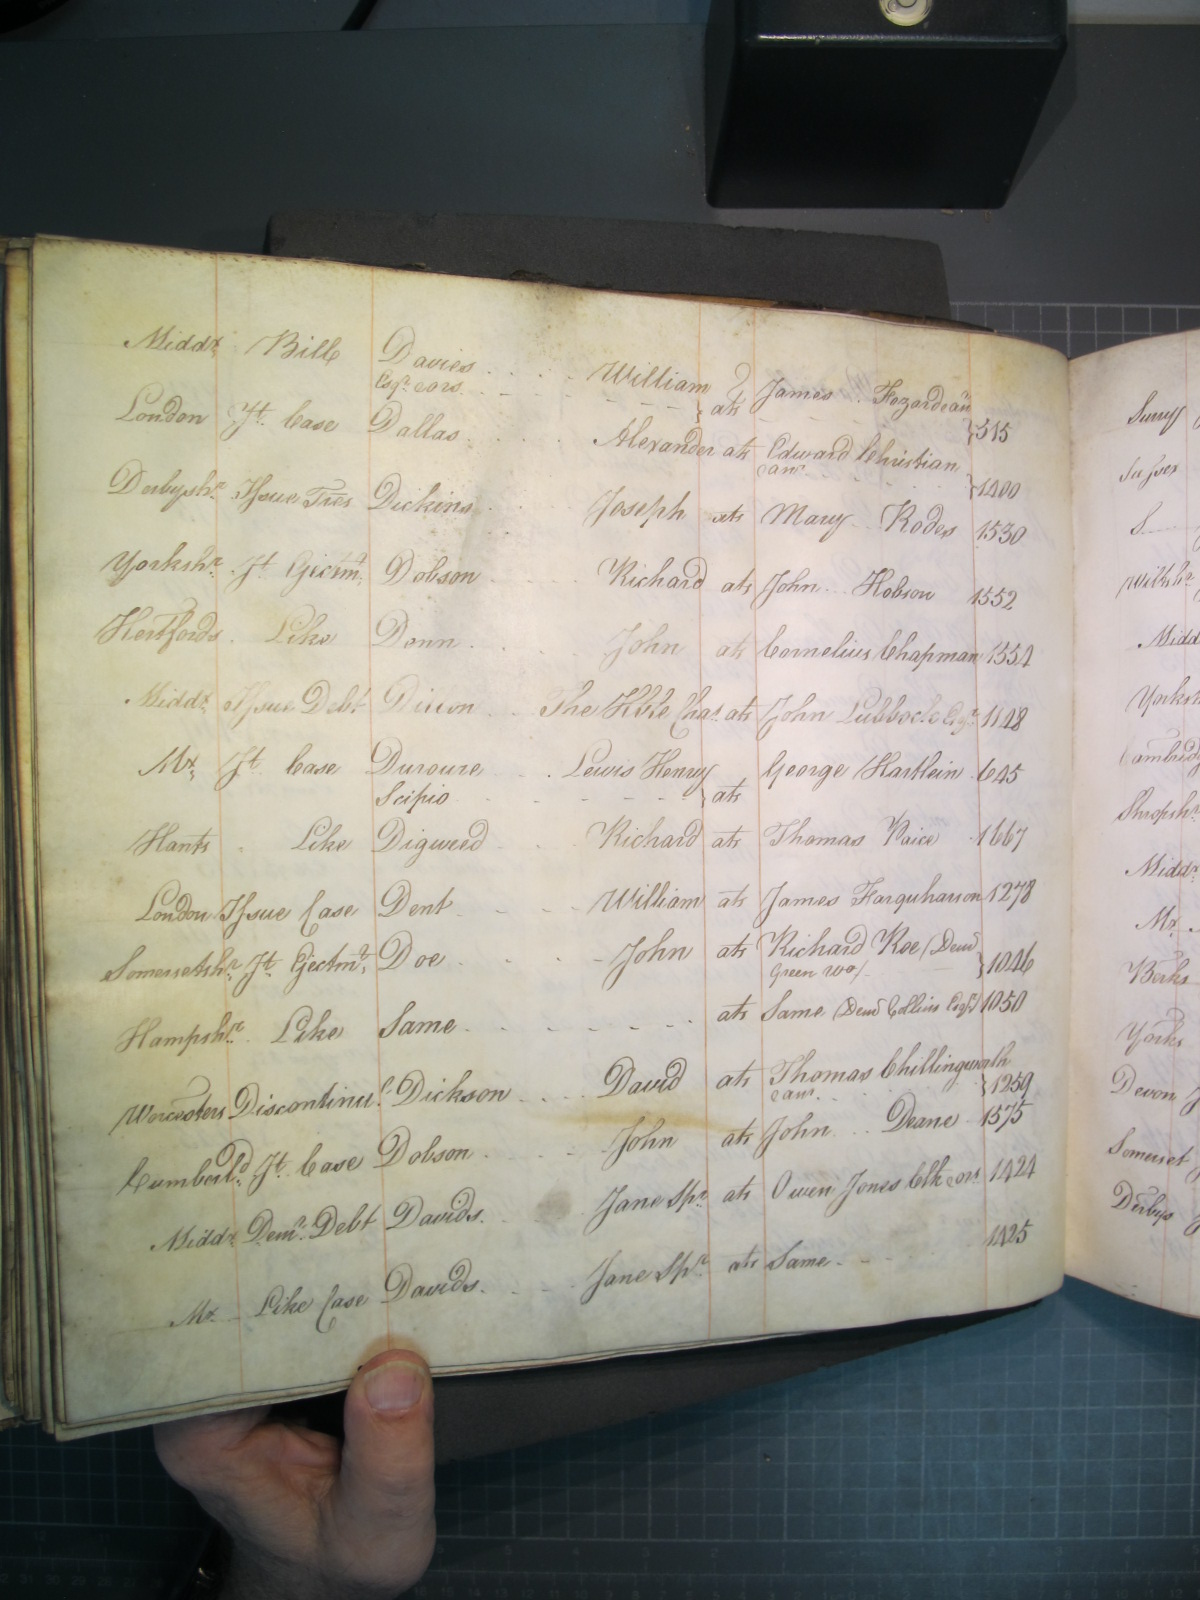 Middx Bill Davies William James Fezardeau
Esqr. & ors. ats 515
London Jt. Case Dallas Alexander ats Edward Christian
& anr. 1400
Derbyshr. Issue Tres Dickins Joseph ats Mary Rodes 1530
Yorkshr. Jt Ejectmt. Dobson Richard ats John Hobson 1552
Hertfords. Like Denn John ats Cornelius Chapman 1554
Middx Issue Debt Dillon The Hble Chas. ats John Lubbock Esqr. 1128
Mx. Jt Case Duroure Lewis Henry George Hartlein 645
Scipio ats
Hants Like Digweed Richard ats Thomas Paice 1667
London Issue Case Dent William ats James Farquharson 1278
Somersetshr. Jt. Ejectmt. Doe John ats Richard Roe (Demd
Green Wo) 1046
Hampshr. Like Same ats Same (Demd Collins Esqr) 1050
Worcesters Discontinuce. Dickson David ats Thomas Chillingworth
& anr. 1259
Cumberld. Jt. Case Dobson John ats John Deane 1575
Middx Demr. Debt Davids. Jane Spr. ats Owen Jones Clk & ors 1424
Mx Like Case Davids. Jane Spr. ats Same 1425
Surry
Sussex
S
Wiltshr.
Midd
Yorksh
Cambridg
Shropshr.
Middx.
Mx.
Berks
Yorks
Devon
Somerset
Derbys